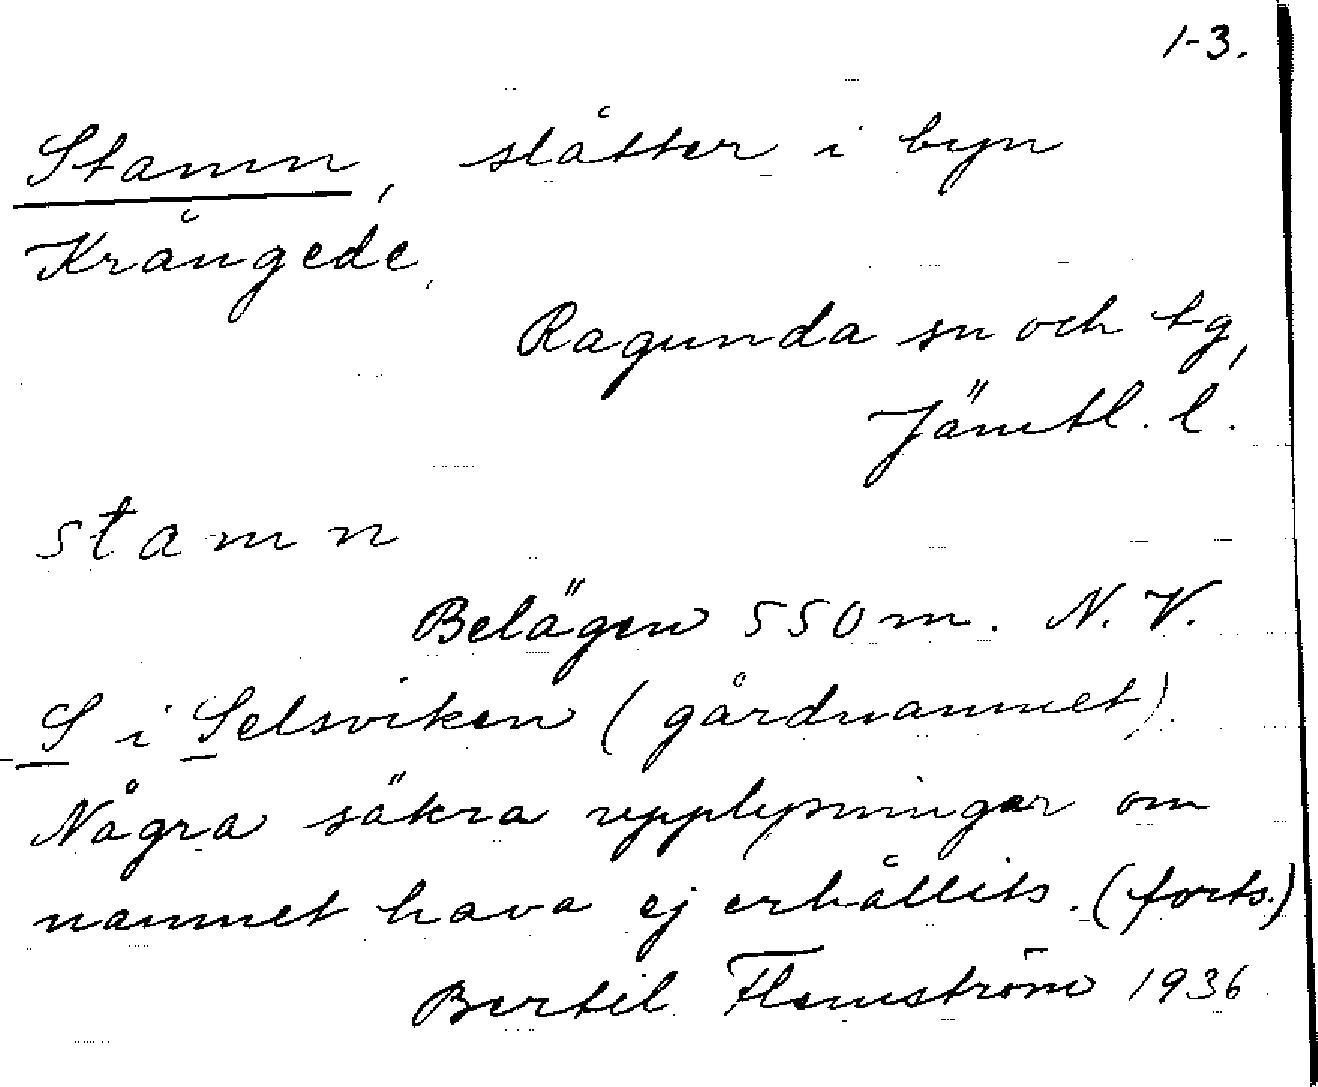 1-3.
Stamn, slåtter i byn
Krångede,
Ragunda sn och tg,
Jämtl. l.
stamn
Belägen 550 m. N.V.
S i Selsviken (gårdnamnet).
Några säkra upplysningar om
namnet hava ej erhållits. (forts.)
Bertil Flemström 1936